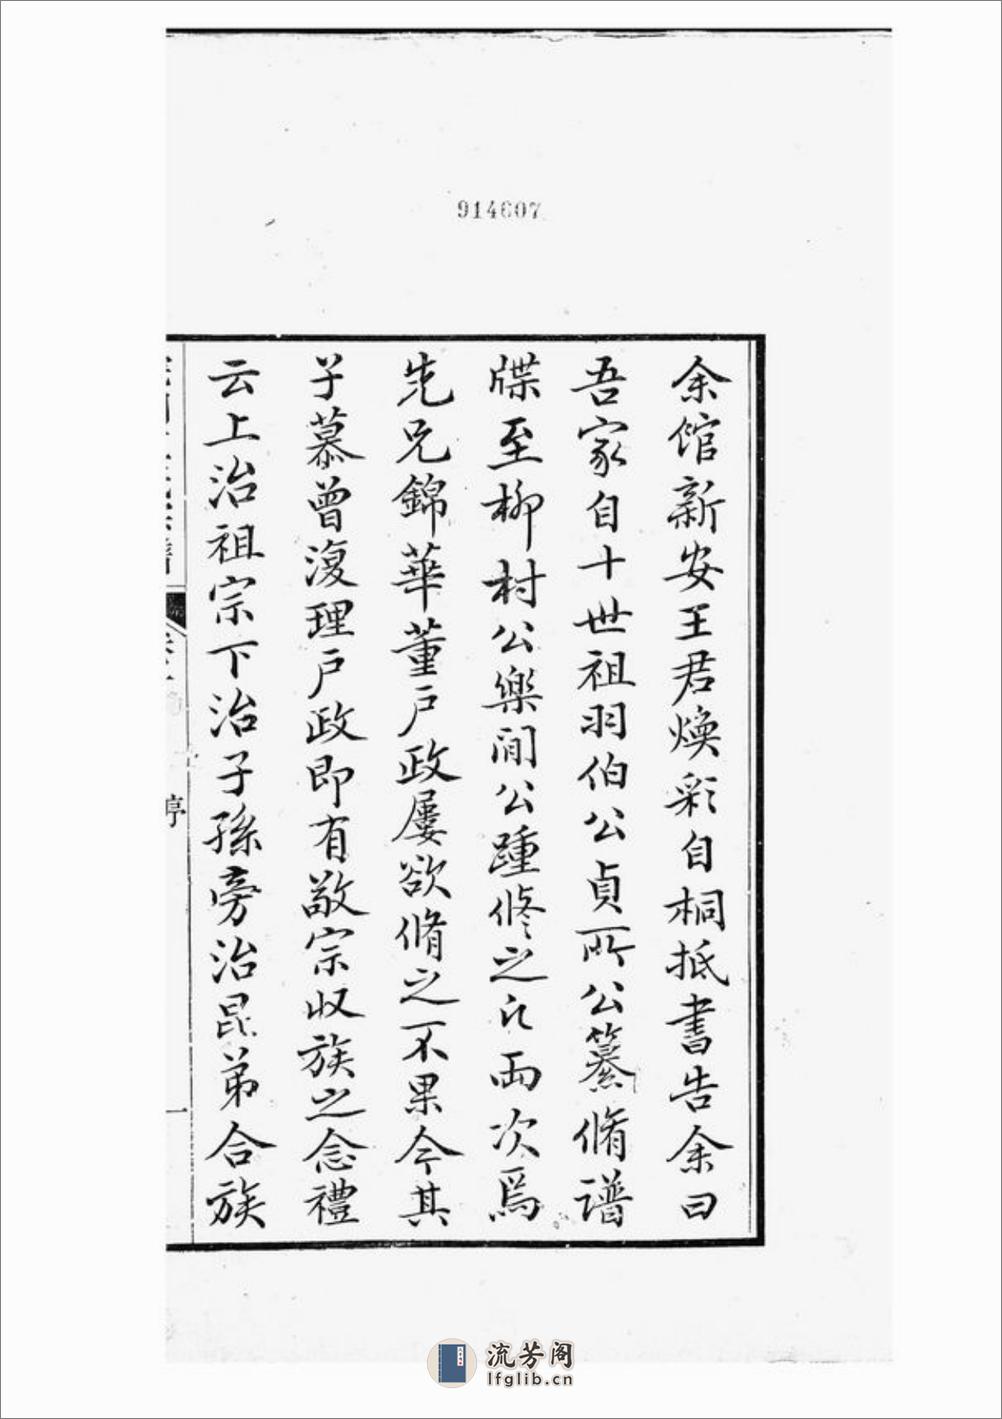 914607
余館新安王君煥彩自桐抵書告余曰
吾家自十世祖羽伯公貞所公纂脩譜
牒至柳村公樂閒公踵修之已兩次焉
先兄錦華董戶政屢欲脩之不果今其
子慕曾復理戶政即有敬宗收族之念禮
云上治祖宗下治子孫旁治昆弟合族
序
一
流芳阁
lfglib.cn